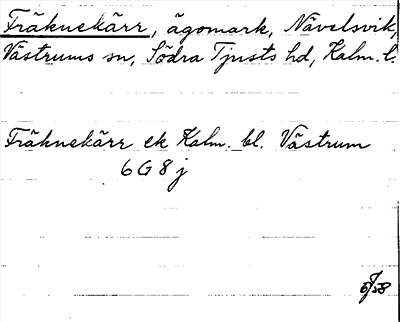 Fräknekärr, ägomark, Nävelsvik,
Västrums sn, Södra Tjusts hd, Kalm. l.
Fräknekärr ek Kalm. bl. Västrum
6 G 8 j